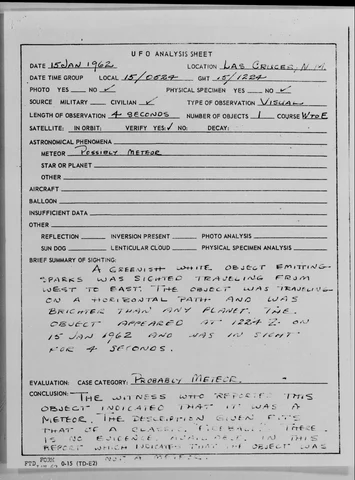 UFO ANALYSIS SHEET
DATE 15 JAN 1962 LOCATION LAS CRUCES, N.M.
DATE TIME GROUP LOCAL 15/0524 GMT 15/1224
PHOTO YES NO ✓ PHYSICAL SPECIMEN YES NO ✓
SOURCE MILITARY CIVILIAN ✓ TYPE OF OBSERVATION VISUAL
LENGTH OF OBSERVATION 4 SECONDS NUMBER OF OBJECTS 1 COURSE W TO E
SATELLITE: IN ORBIT: VERIFY YES: ✓ NO: DECAY:
ASTRONOMICAL PHENOMENA
METEOR POSSIBLY METEOR
STAR OR PLANET
OTHER
AIRCRAFT
BALLOON
INSUFFICIENT DATA
OTHER
REFLECTION INVERSION PRESENT PHOTO ANALYSIS
SUN DOG LENTICULAR CLOUD PHYSICAL SPECIMEN ANALYSIS
BRIEF SUMMARY OF SIGHTING:
A GREENISH WHITE OBJECT EMITTING
SPARKS WAS SIGHTED TRAVELING FROM
WEST TO EAST. THE OBJECT WAS TRAVELING
ON A HORIZONTAL PATH AND WAS
BRIGHTER THAN ANY PLANET. THE
OBJECT APPEARED AT 1224 Z ON
15 JAN 1962 AND WAS IN SIGHT
FOR 4 SECONDS.
EVALUATION: CASE CATEGORY: PROBABLY METEOR.
CONCLUSION: THE WITNESS WHO REPORTED THIS
OBJECT INDICATED THAT IT WAS A
METEOR. THE DESCRIPTION GIVEN FITS
THAT OF A CLASSIC "FIREBALL". THERE
IS NO EVIDENCE AVAILABLE IN THIS
REPORT WHICH INDICATED THE OBJECT WAS
NOT A METEOR.
FTD FORM 0-35 (TD-E2)